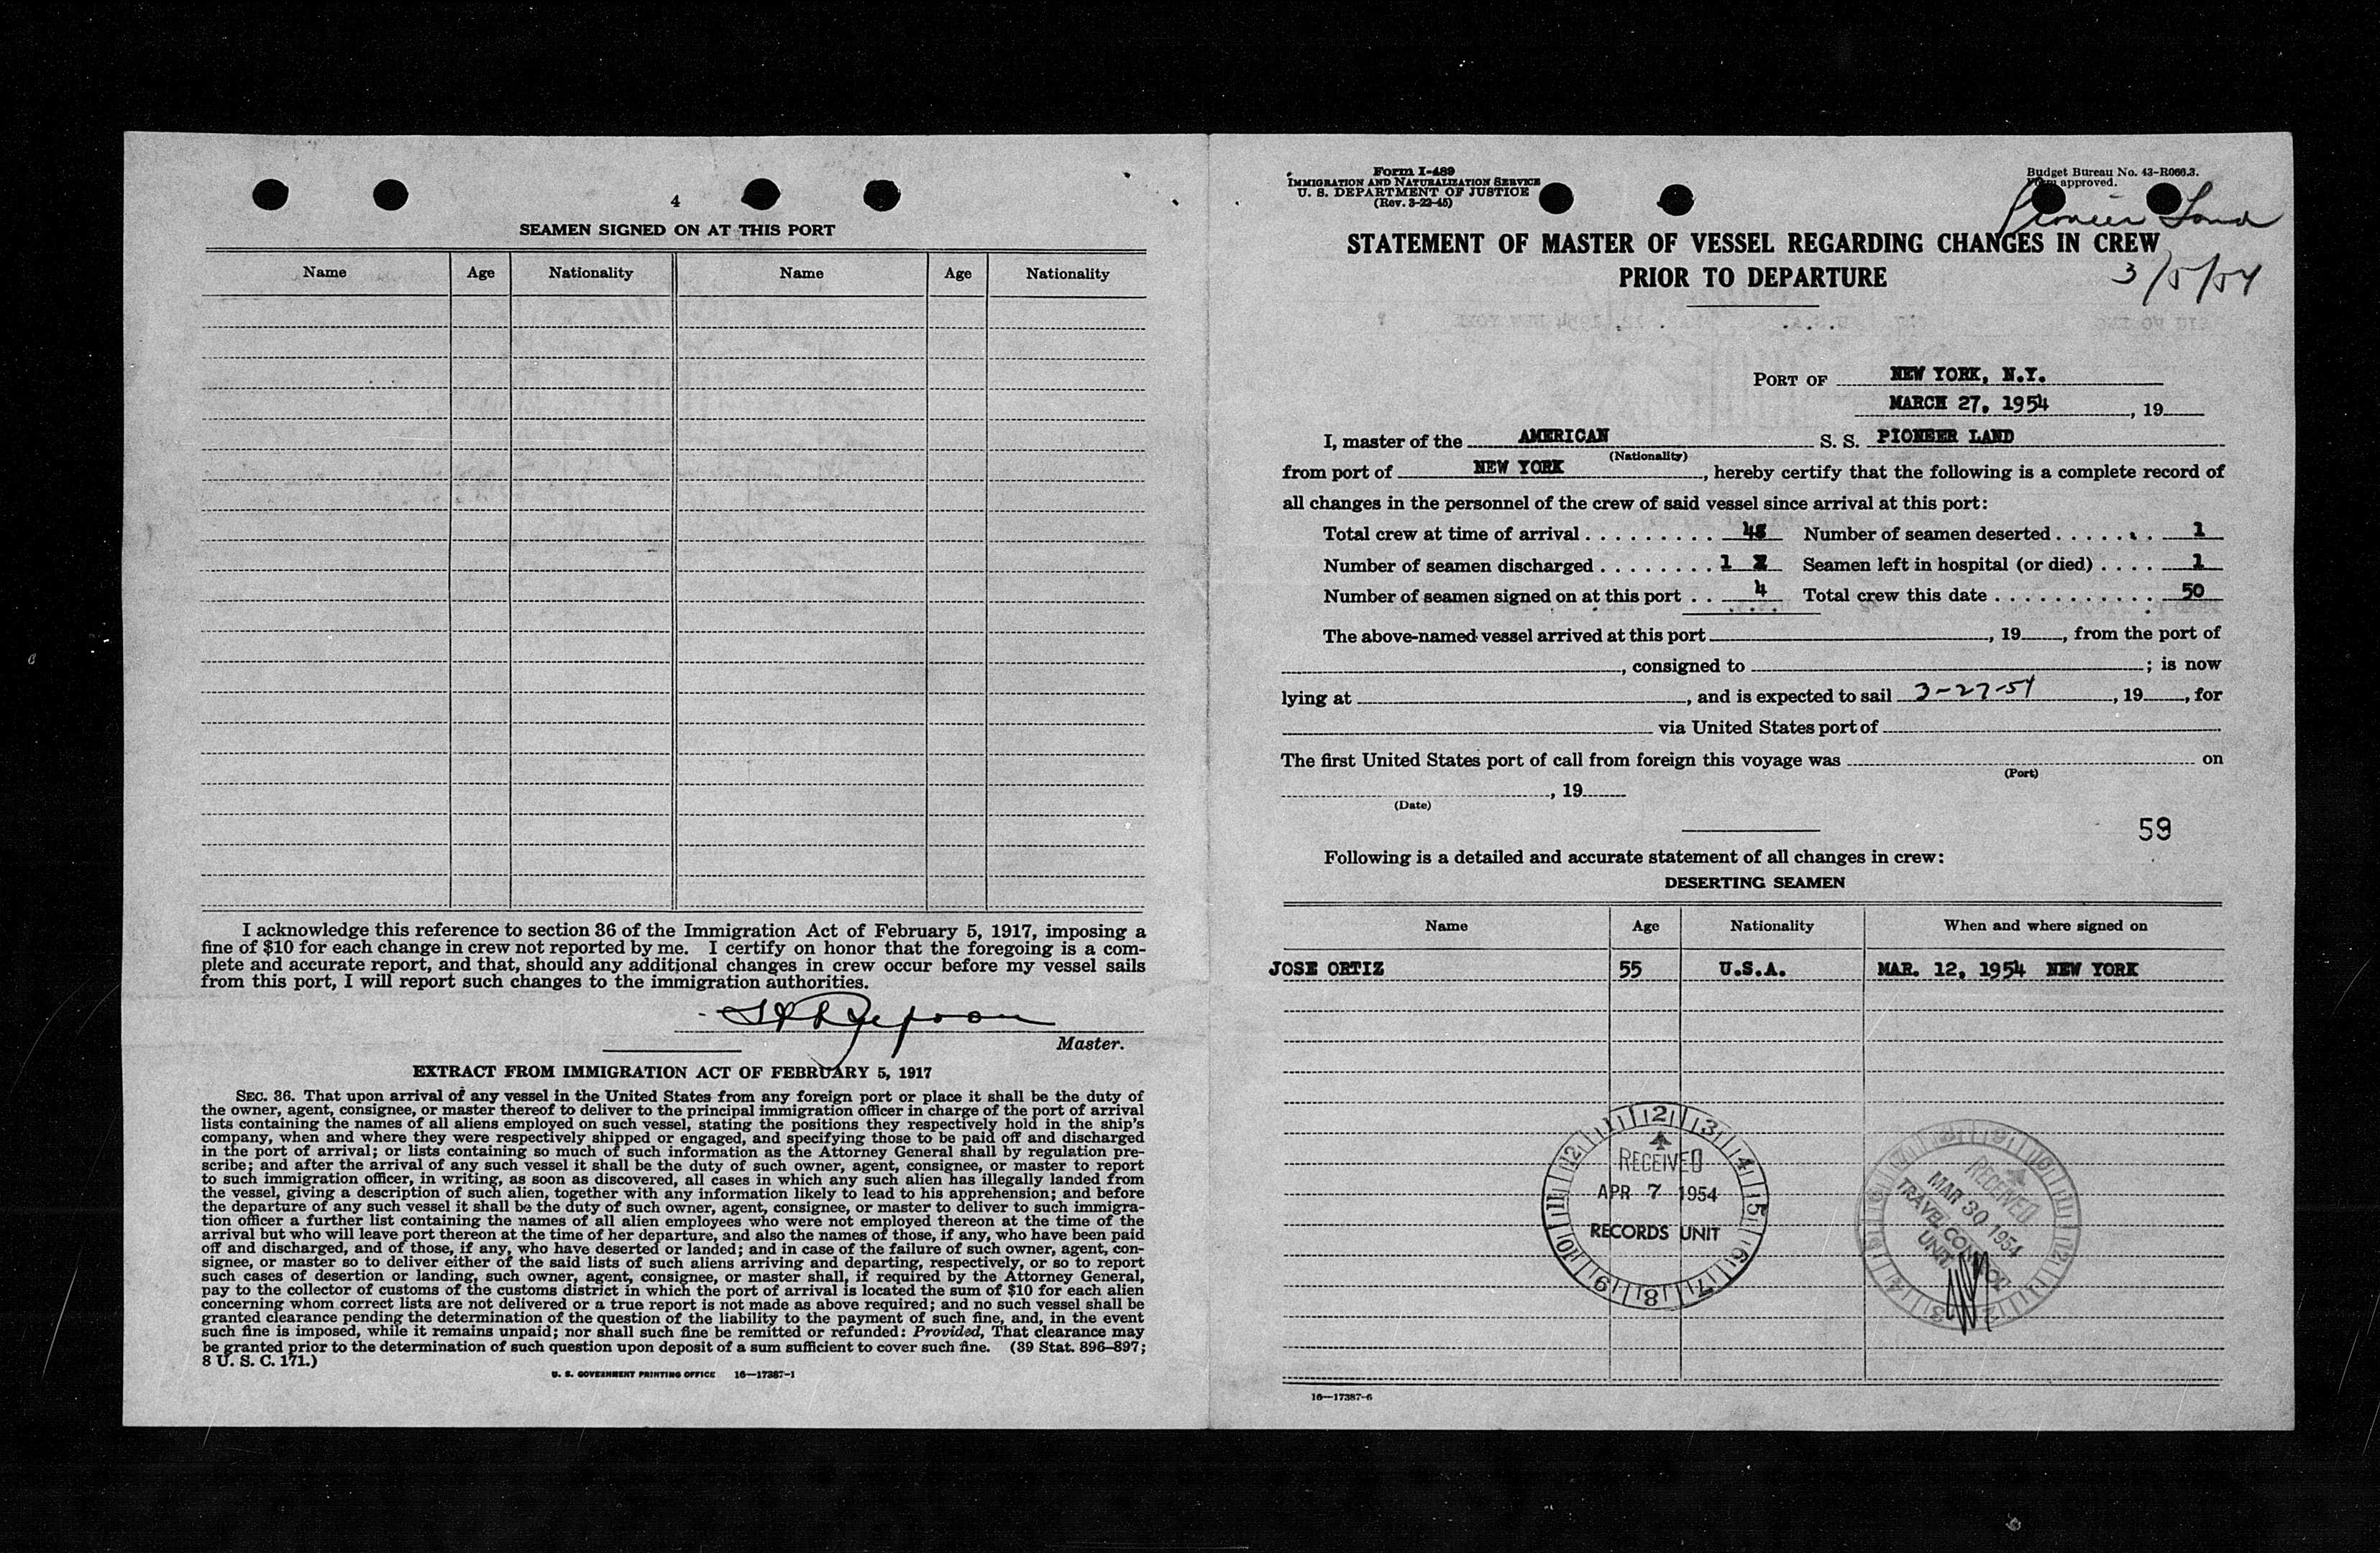 4
SEAMEN SIGNED ON AT THIS PORT
Name Age Nationality Name Age Nationality
I acknowledge this reference to section 36 of the Immigration Act of February 5, 1917, imposing a
fine of $10 for each change in crew not reported by me. I certify on honor that the foregoing is a com-
plete and accurate report, and that, should any additional changes in crew occur before my vessel sails
from this port, I will report such changes to the immigration authorities.
Master.
EXTRACT FROM IMMIGRATION ACT OF FEBRUARY 5, 1917
SEC. 36. That upon arrival of any vessel in the United States from any foreign port or place it shall be the duty of
the owner, agent, consignee, or master thereof to deliver to the principal immigration officer in charge of the port of arrival
lists containing the names of all aliens employed on such vessel, stating the positions they respectively hold in the ship's
company, when and where they were respectively shipped or engaged, and specifying those to be paid off and discharged
in the port of arrival; or lists containing so much of such information as the Attorney General shall by regulation pre-
scribe; and after the arrival of any such vessel it shall be the duty of such owner, agent, consignee, or master to report
to such immigration officer, in writing, as soon as discovered, all cases in which any such alien has illegally landed from
the vessel, giving a description of such alien, together with any information likely to lead to his apprehension; and before
the departure of any such vessel it shall be the duty of such owner, agent, consignee, or master to deliver to such immigra-
tion officer a further list containing the names of all alien employees who were not employed thereon at the time of the
arrival but who will leave port thereon at the time of her departure, and also the names of those, if any, who have been paid
off and discharged, and of those, if any, who have deserted or landed; and in case of the failure of such owner, agent, con-
signee, or master so to deliver either of the said lists of such aliens arriving and departing, respectively, or so to report
such cases of desertion or landing, such owner, agent, consignee, or master shall, if required by the Attorney General,
pay to the collector of customs of the customs district in which the port of arrival is located the sum of $10 for each alien
concerning whom correct lists are not delivered or a true report is not made as above required; and no such vessel shall be
granted clearance pending the determination of the question of the liability to the payment of such fine, and, in the event
such fine is imposed, while it remains unpaid; nor shall such fine be remitted or refunded: Provided, That clearance may
be granted prior to the determination of such question upon deposit of a sum sufficient to cover such fine. (39 Stat. 896–897;
8 U. S. C. 171.)
U. S. GOVERNMENT PRINTING OFFICE 16—17387-1
Form I-489
IMMIGRATION AND NATURALIZATION SERVICE
U. S. DEPARTMENT OF JUSTICE
(Rev. 3-22-45)
Budget Bureau No. 43-R066.3.
Form approved.
Pioneer Land
STATEMENT OF MASTER OF VESSEL REGARDING CHANGES IN CREW
PRIOR TO DEPARTURE
3/5/54
PORT OF NEW YORK, N.Y.
MARCH 27, 1954, 19
I, master of the AMERICAN S. S. PIONEER LAND
(Nationality)
from port of NEW YORK, hereby certify that the following is a complete record of
all changes in the personnel of the crew of said vessel since arrival at this port:
Total crew at time of arrival . . . . . . . . . 48 Number of seamen deserted . . . . . . . 1
Number of seamen discharged . . . . . . . . 1 Seamen left in hospital (or died) . . . . 1
Number of seamen signed on at this port . . 4 Total crew this date . . . . . . . . . . . 50
The above-named vessel arrived at this port , 19 , from the port of
, consigned to ; is now
lying at , and is expected to sail 3-27-54, 19 , for
via United States port of
The first United States port of call from foreign this voyage was on
(Port)
, 19
(Date)
59
Following is a detailed and accurate statement of all changes in crew:
DESERTING SEAMEN
Name Age Nationality When and where signed on
JOSE ORTIZ 55 U.S.A. MAR. 12, 1954 NEW YORK
RECEIVED
APR 7 1954
RECORDS UNIT
RECEIVED
MAR 30 1954
TRAVEL CONTROL
UNIT
16—17387-6